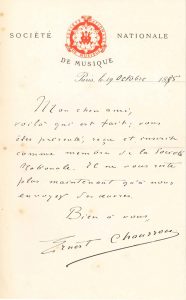 SOCIÉTÉ NATIONALE
DE MUSIQUE
Paris, le 19 Octobre 1885
Mon cher ami,
voilà qui est fait; vous
êtes présenté, reçu et inscrit
comme membre de la Société
Nationale. Il ne vous reste
plus maintenant qu'à nous
envoyer des œuvres.
Bien à vous,
Ernest Chausson